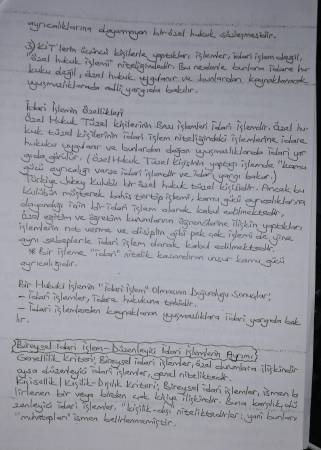 ayrıcalıklarına dayanmayan bir özel hukuk sözleşmesidir.
3) KİT'lerin üçüncü kişilerle yaptıkları işlemler, idari işlem değil,
"özel hukuk işlemi" niteliğindedir. Bu nedenle bunlara idare hu
kuku değil, özel hukuk uygulanır ve bunlardan kaynaklanacak
uyuşmazlıklarda adli yargıda bakılır.
İdari İşlemin Özellikleri
Özel Hukuk Tüzel Kişilerinin Bazı İşlemleri İdari İşlemdir. Özel hu-
kuk tüzel kişilerinin idari işlem niteliğindeki işlemlerine idare
hukuku uygulanır ve bunlardan doğan uyuşmazlıklarda idari yar
gıda görülür. (Özel Hukuk Tüzel Kişisinin yaptığı işlemde "kamu
gücü ayrıcalığı varsa idari işlemdir ve idari yargı bakar.)
Türkiye Jokey Kulübü bir özel hukuk tüzel kişisidir. Ancak bu
kulübün müşterek bahis tertip işlemi, kamu gücü ayrıcalıklarına
dayandığı için bir idari işlem olarak kabul edilmektedir.
Özel eğitim ve öğretim kurumlarının öğrencilerine ilişkin yaptıkları
işlemlerin not verme ve disiplin gibi pek çok işlemi de yine
aynı sebeplerle idari işlem olarak kabul edilmektedir.
* Bir işleme "idari" nitelik kazandıran unsur kamu gücü
ayrıcalığıdır.
Bir Hukuki İşlemin "İdari İşlem" Olmasının Doğurduğu Sonuçlar;
- İdari işlemler, idare hukukuna tabidir.
- İdari işlemlerden kaynaklanan uyuşmazlıklara idari yargıda bak
lır.
Bireysel İdari İşlem - Düzenleyici İdari İşlemlerin Ayrımı
Genellilik Kriteri; Bireysel idari işlemler, özel durumlara ilişkindir
oysa düzenleyici idari işlemler, genel niteliktedir.
Kişisellik / Kişilik-Dışılık Kriteri; Bireysel idari işlemler, ismen be
lirlenen bir veya birden çok kişiye ilişkindir. Buna karşılık, dü
zenleyici idari işlemler, "kişilik-dışı niteliktedirler; yani bunların
"muhatapları" ismen belirlenmemiştir.